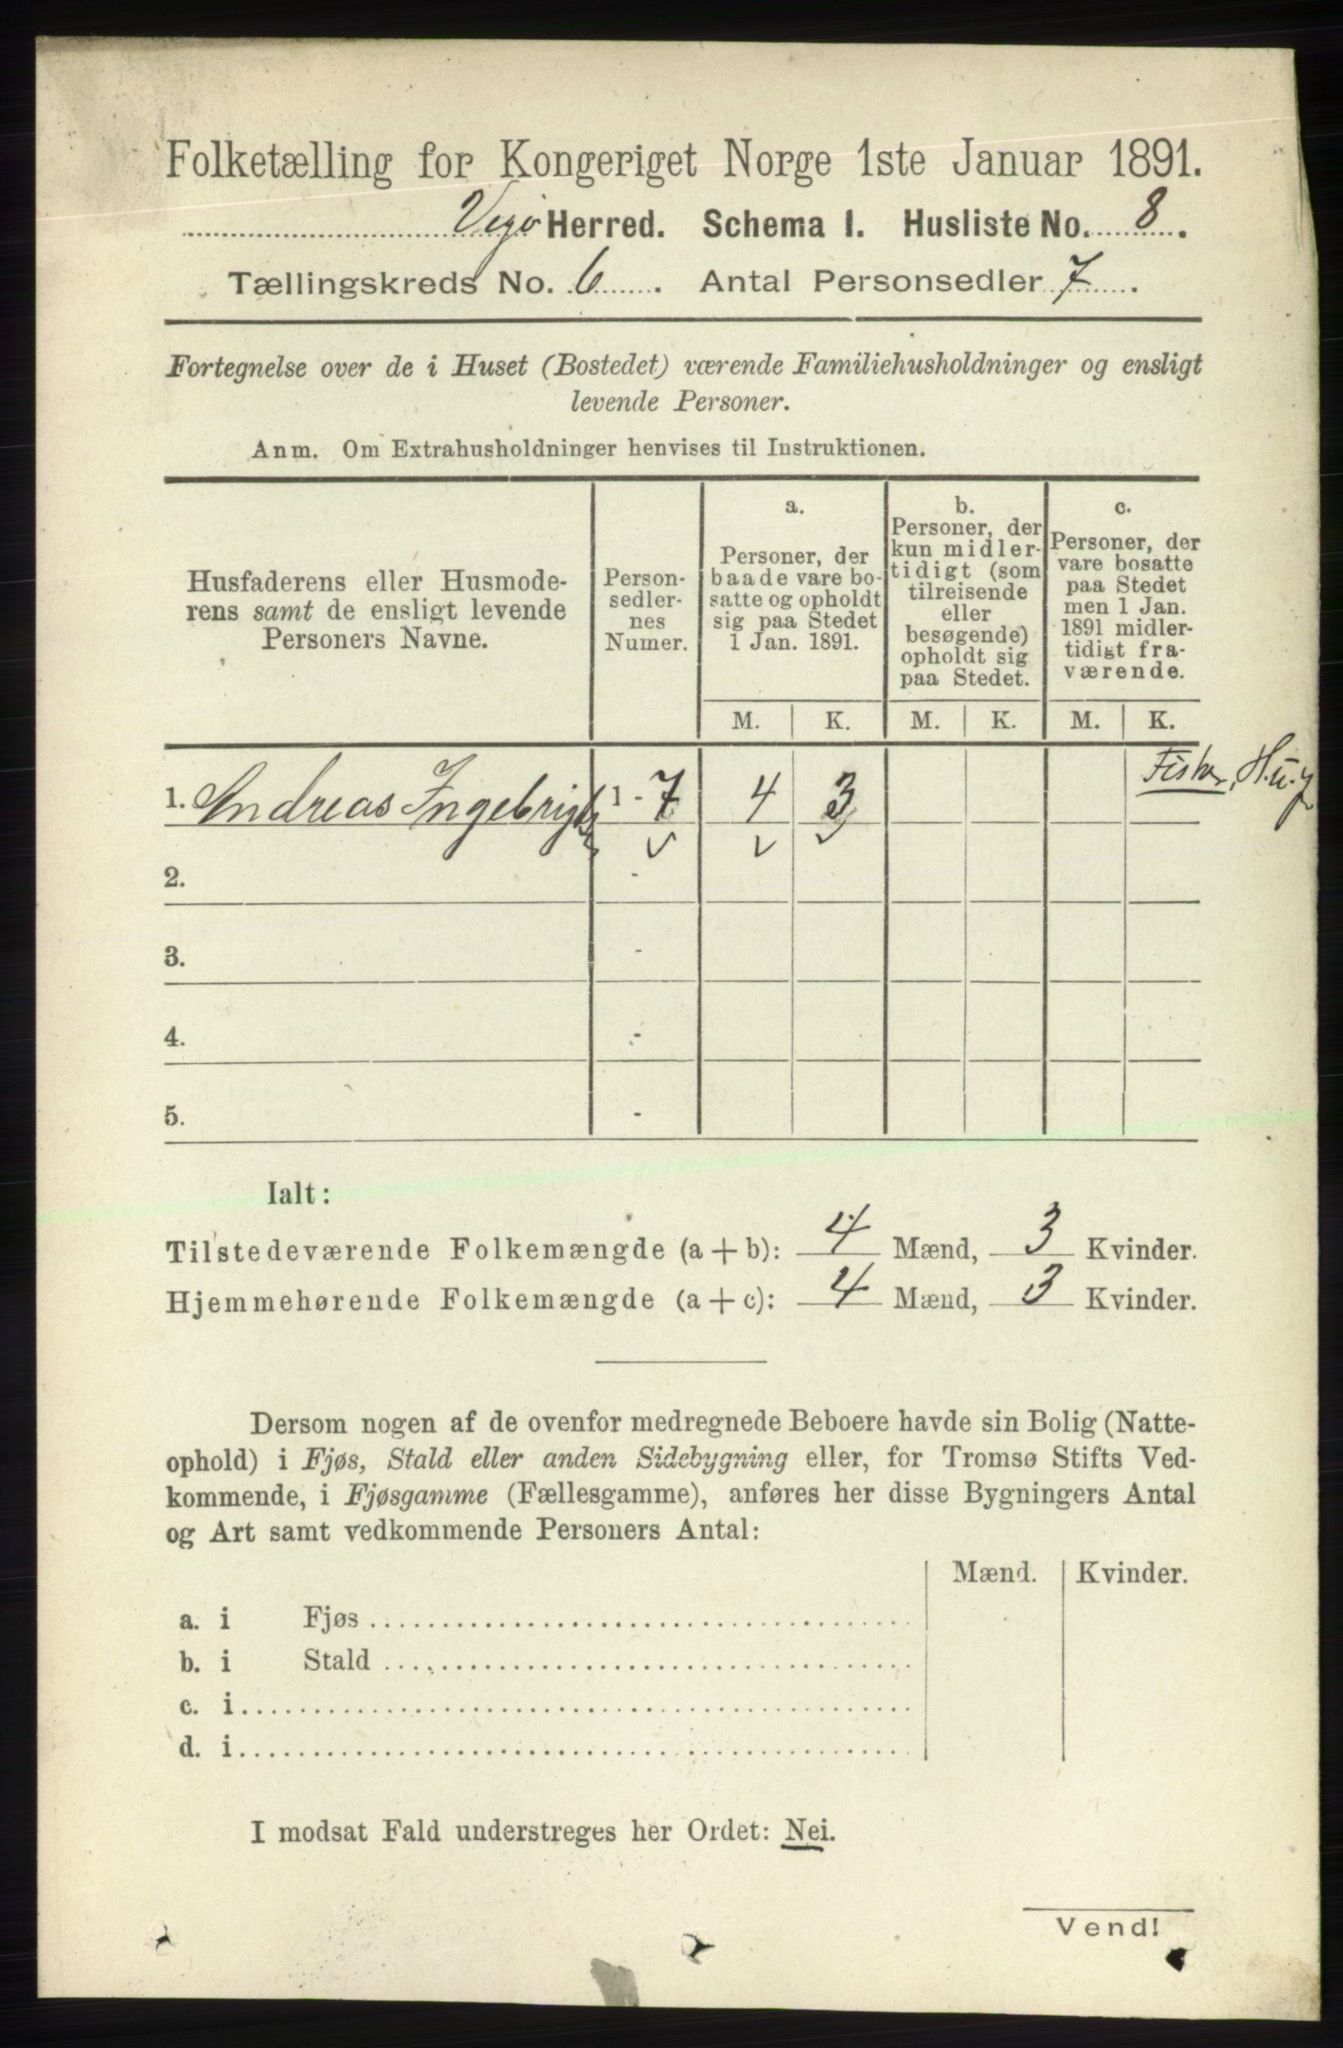 Folketælling for Kongeriget Norge 1ste Januar 1891.
Vegø Herred. Schema I. Husliste No. 8.
Tællingskreds No. 6. Antal Personsedler 7.
Fortegnelse over de i Huset (Bostedet) værende Familiehusholdninger og ensligt
levende Personer.
Anm. Om Extrahusholdninger henvises til Instruktionen.
Husfaderens eller Husmode-
rens samt de ensligt levende
Personers Navne.
Person-
sedler-
nes
Numer.
a.
Personer, der
baade vare bo-
satte og opholdt
sig paa Stedet
1 Jan. 1891.
b.
Personer, der
kun midler-
tidigt (som
tilreisende
eller
besøgende)
opholdt sig
paa Stedet.
c.
Personer, der
vare bosatte
paa Stedet
men 1 Jan.
1891 midler-
tidigt fra-
værende.
M. K. M. K. M. K.
Fisker, H.u.j
1. Andreas Ingebrigtsen 1 - 7 4 3
2. -
3. -
4. -
5. -
Ialt:
Tilstedeværende Folkemængde (a + b): 4 Mænd, 3 Kvinder.
Hjemmehørende Folkemængde (a + c): 4 Mænd, 3 Kvinder.
Dersom nogen af de ovenfor medregnede Beboere havde sin Bolig (Natte-
ophold) i Fjøs, Stald eller anden Sidebygning eller, for Tromsø Stifts Ved-
kommende, i Fjøsgamme (Fællesgamme), anføres her disse Bygningers Antal
og Art samt vedkommende Personers Antal:
Mænd. Kvinder.
a. i Fjøs
b. i Stald
c. i
d. i
I modsat Fald understreges her Ordet: Nei.
Vend!